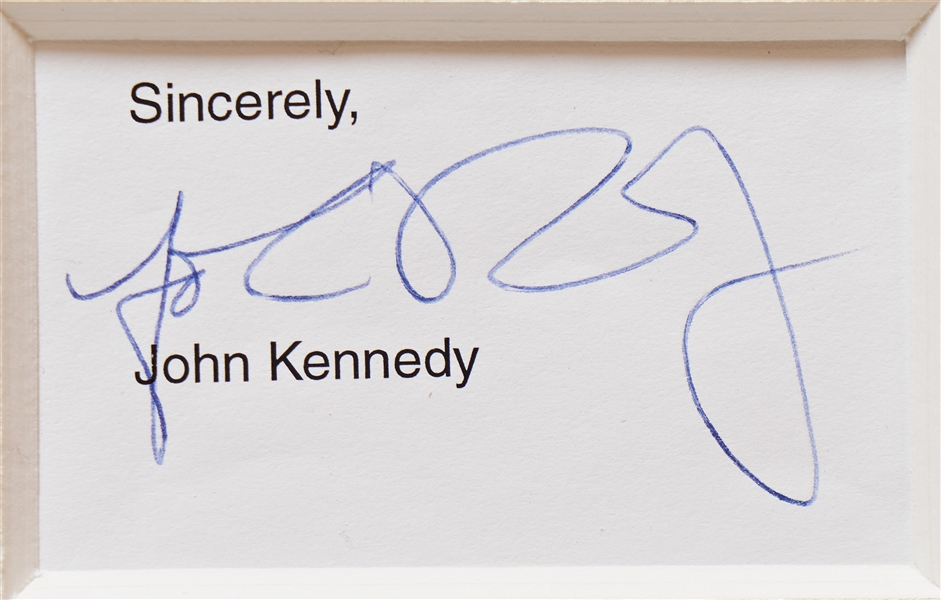 Sincerely,
John Kennedy